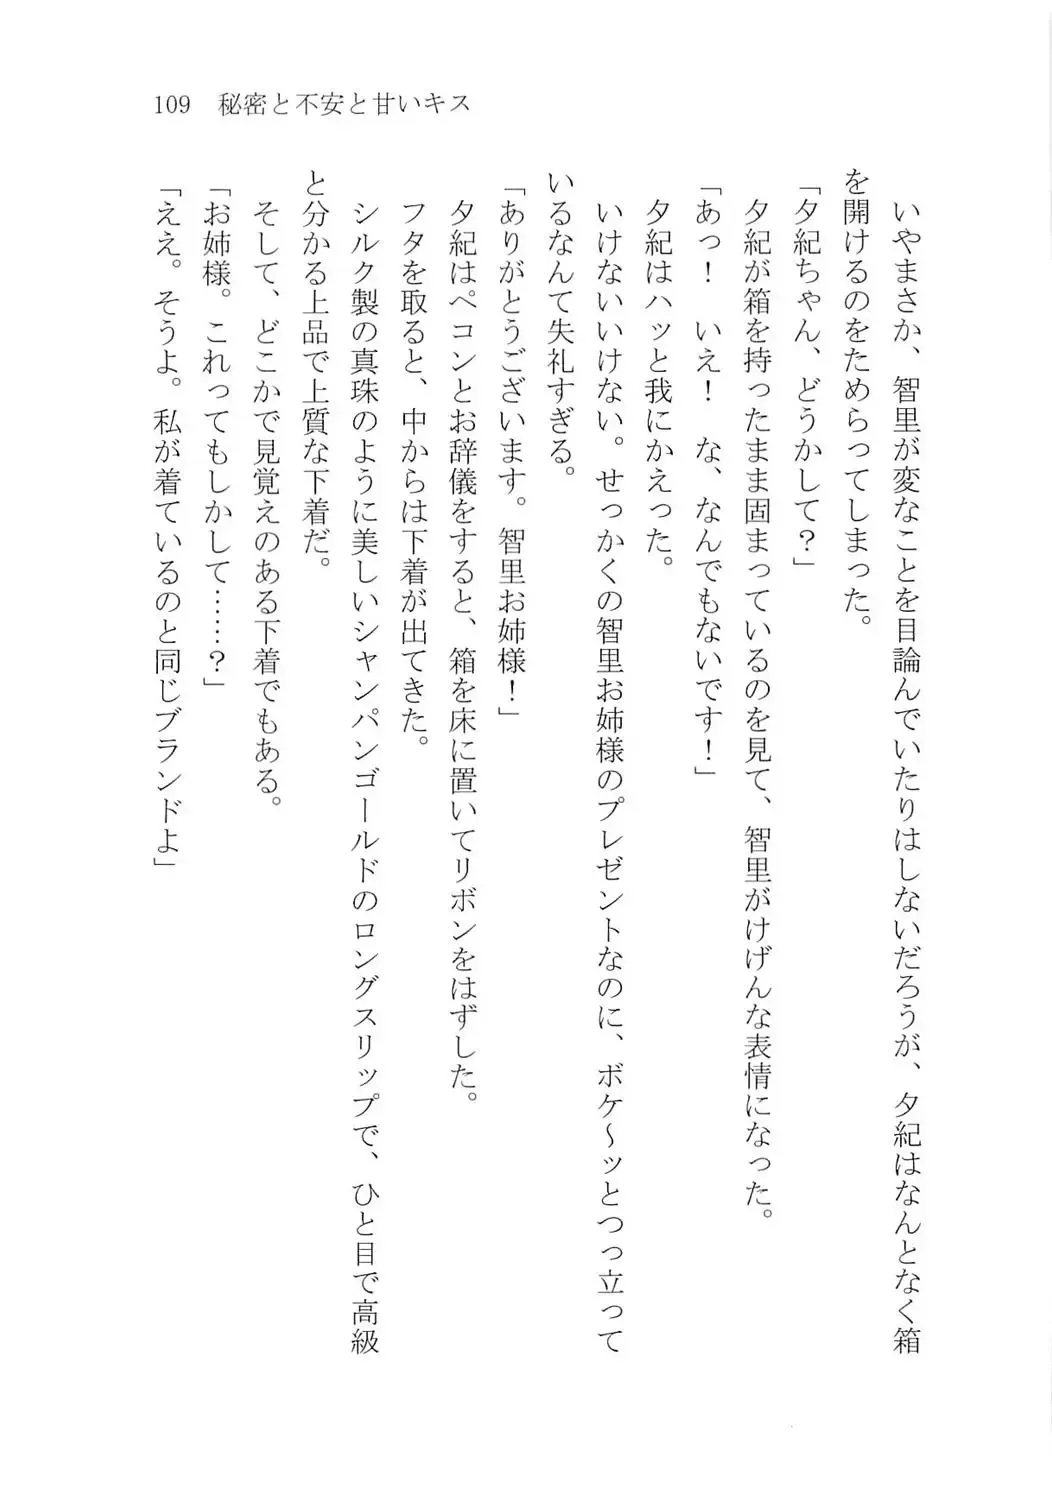 109　秘密と不安と甘いキス
　いやまさか、智里が変なことを目論んでいたりはしないだろうが、夕紀はなんとなく箱
を開けるのをためらってしまった。
「夕紀ちゃん、どうかして？」
　夕紀が箱を持ったまま固まっているのを見て、智里がけげんな表情になった。
「あっ！　いえ！　な、なんでもないです！」
　夕紀はハッと我にかえった。
　いけないいけない。せっかくの智里お姉様のプレゼントなのに、ボケ～ッとつっ立って
いるなんて失礼すぎる。
「ありがとうございます。智里お姉様！」
　夕紀はペコンとお辞儀をすると、箱を床に置いてリボンをはずした。
フタを取ると、中からは下着が出てきた。
　シルク製の真珠のように美しいシャンパンゴールドのロングスリップで、ひと目で高級
と分かる上品で上質な下着だ。
　そして、どこかで見覚えのある下着でもある。
「お姉様。これってもしかして……？」
「ええ。そうよ。私が着ているのと同じブランドよ」